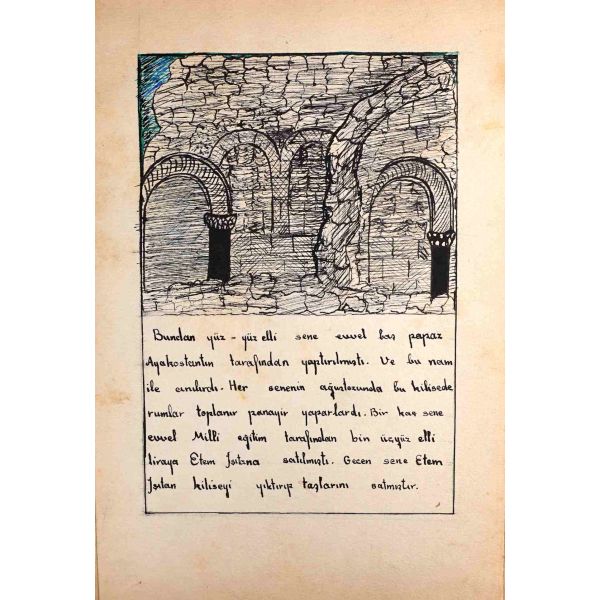 Bundan yüz - yüz elli sene evvel baş papaz
Ayakostantin tarafından yaptırılmıştı. Ve bu nam
ile anılırdı. Her senenin ağustozunda bu kilisede
rumlar toplanır panayir yaparlardı. Bir kaç sene
evvel Milli eğitim tarafından bin üçyüz elli
liraya Etem Işıtana satılmıştı. Geçen sene Etem
Işıtan kiliseyi yıktırıp taşlarını satmıştır.